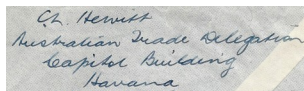 Ch. Hewitt
Australian Trade Delegation
Capitol Building
Havana